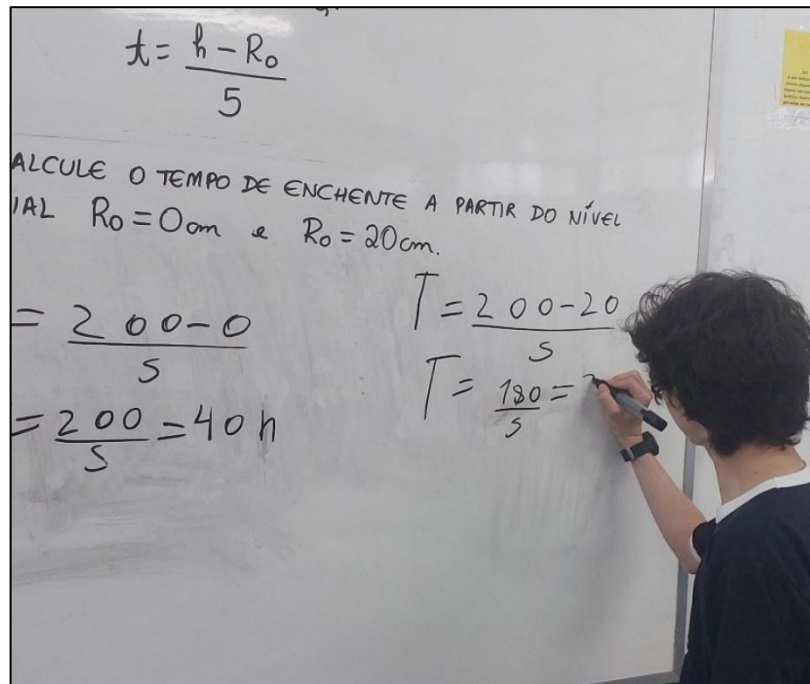 t = h - R₀ / 5
ALCULE O TEMPO DE ENCHENTE A PARTIR DO NÍVEL
IAL R₀ = 0cm e R₀ = 20cm.
= 200-0 / 5
= 200 / 5 = 40 h
T = 200-20 / 5
T = 180 / 5 =